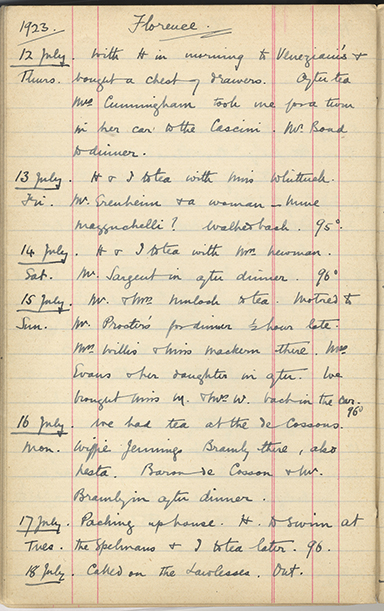 1923. Florence.
12 July. With H in morning to Veneziani's &
Thurs. bought a chest of drawers. After tea
Mrs Cunningham took me for a turn
in her car to the Cascini. Mr. Bond
to dinner.
13 July. H & I to tea with Miss Whittuck.
Fri. Mr. Greenheim & a woman — Mme
? Walked back. 95°.
14 July. H & I to tea with Mrs. Newman.
Sat. Mr. Sargent in after dinner. 96°
15 July. Mr. & Mrs. to tea. Motred to
Sun. Mr. Proctor's for dinner ½ hour late.
Mrs Willis & Miss Mackern there. Mrs
Evans & her daughter in after. We
brought Miss M. & Mrs W. back in the car.
96°
16 July. We had tea at the de Cossons.
Mon. Jennings Bramly there, also
Baron de Cosson & Mr.
Bramly in after dinner.
17 July. Packing up house. H. to swim at
Tues. the Spelmans & I to tea later. 96.
18 July. Called on the Lawlesses. Out.